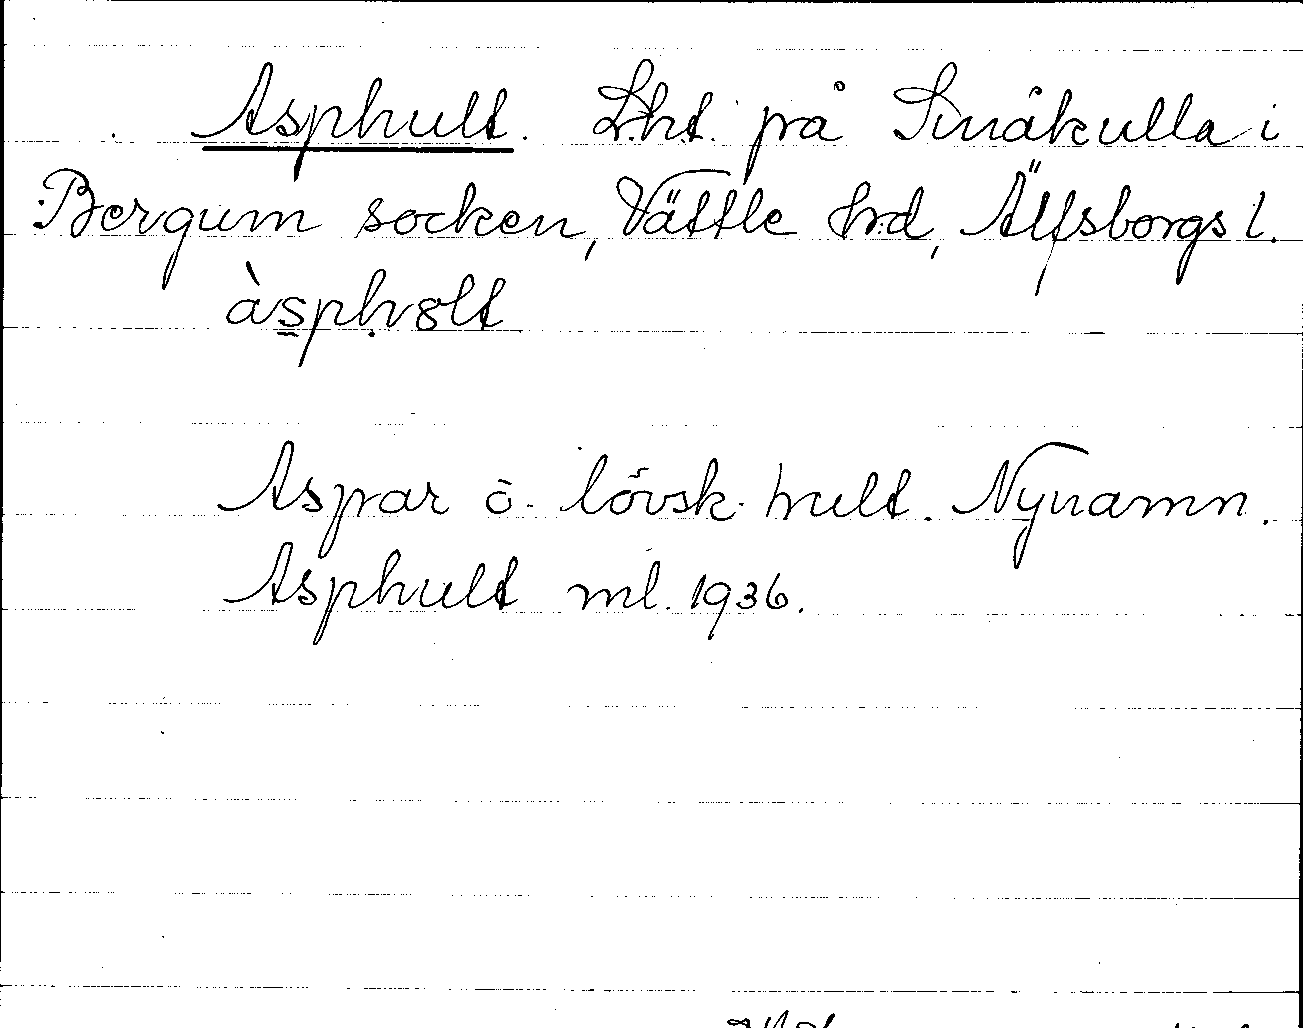 Asphult. Lht. på Småkulla i
Bergum socken, Vättle hd, Älfsborgs l.
àsphɞlt
Aspar o. lövsk. hult. Nynamn.
Asphult ml. 1936.